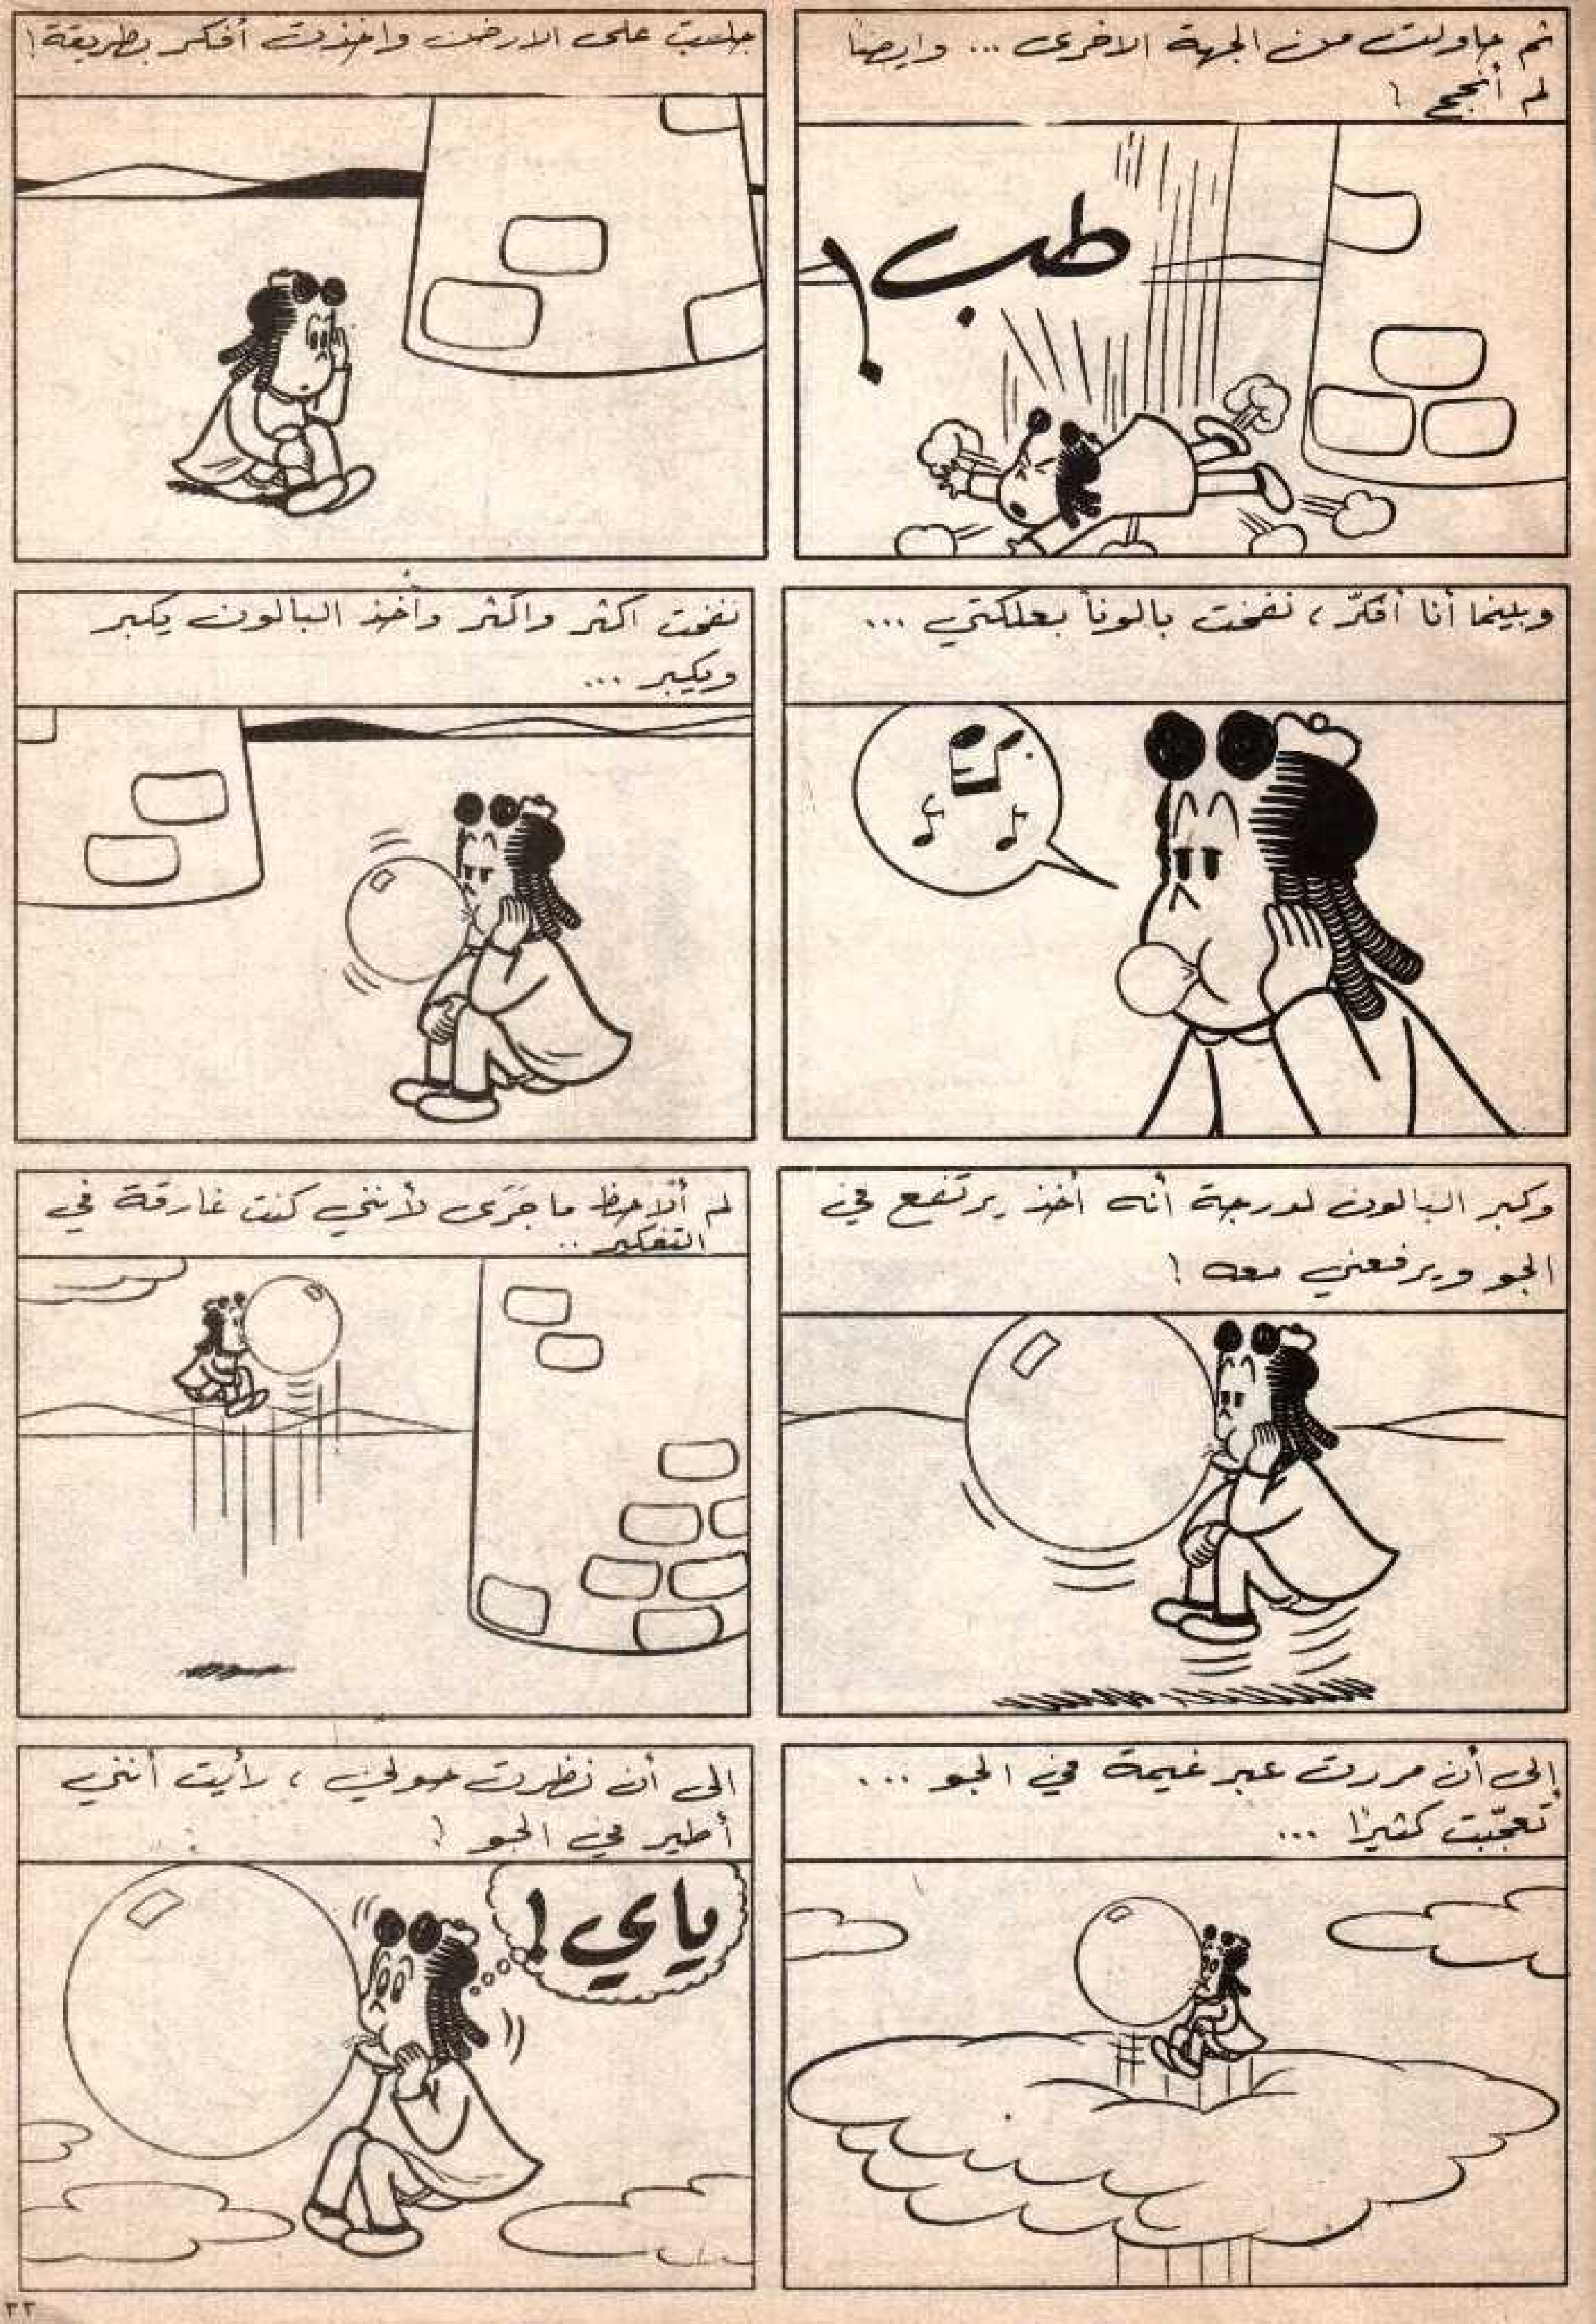 ثم حاولت من الجهة الاخرى ... وايضاً
لم أنجح !
طب !
جلست على الارض واخذت أفكر بطريقة !
وبينما أنا أفكّر، نفخت بالوناً بعلكتي ...
نفخت اكثر واكثر وأخذ البالون يكبر
ويكبر ...
وكبر البالون لدرجة أنه أخذ يرتفع في
الجو ويرفعني معه !
لم ألاحظ ما جَرَى لأنني كنت غارقة في
التفكير ..
إلى أن مررت عبر غيمة في الجو ...
تعجّبت كثيرًا ...
الى أن نظرت حولي ، رأيت أنني
أطير في الجو !
ياي !
٣٣